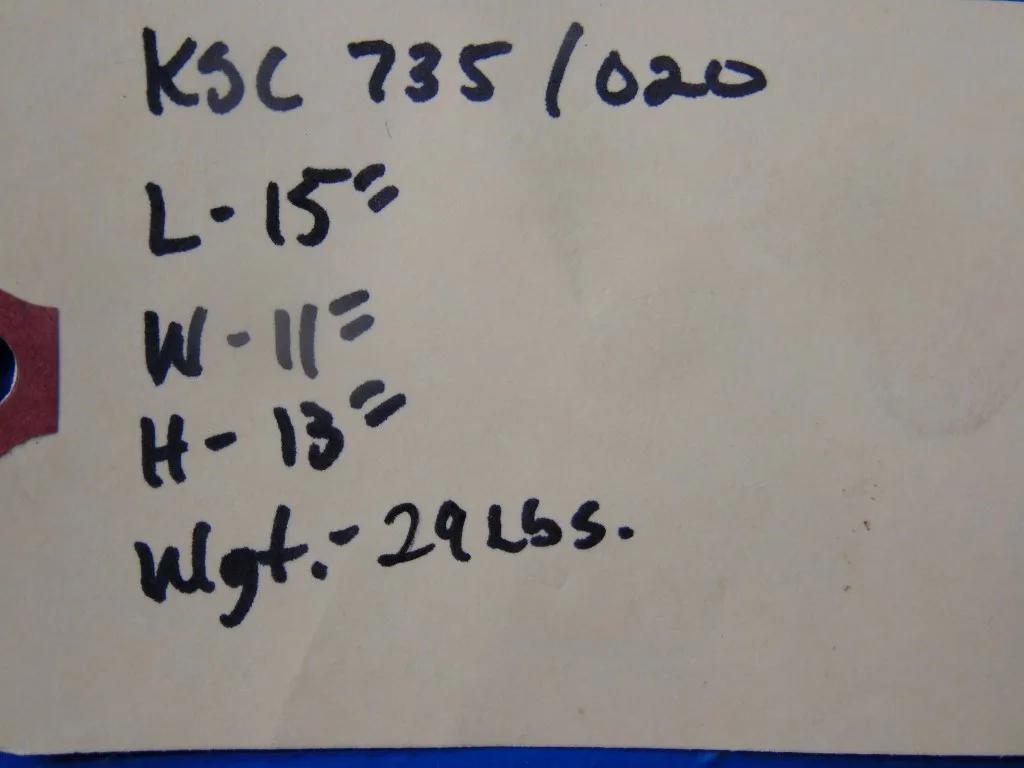 KSC 735/020
L-15"
W-11"
H-13"
Wgt.-29 Lbs.